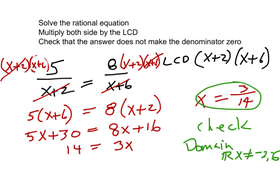 Solve the rational equation
Multiply both side by the LCD
Check that the answer does not make the denominator zero
(x+2)(x+6) 5 / x+2 = 8 (x+2)(x+6) / x+6 LCD (x+2)(x+6)
5(x+6) = 8(x+2)
5x+30 = 8x+16
14 = 3x
x = 3/14
check
Domain
ℝ x≠-2,